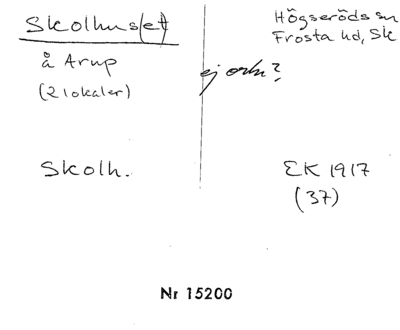 Skolhus(et)
å Arup
(2 lokaler)
Högseröds sn
Frosta hd, Sk
ej ortn?
Skolh.
EK 1917
(37)
Nr 15200